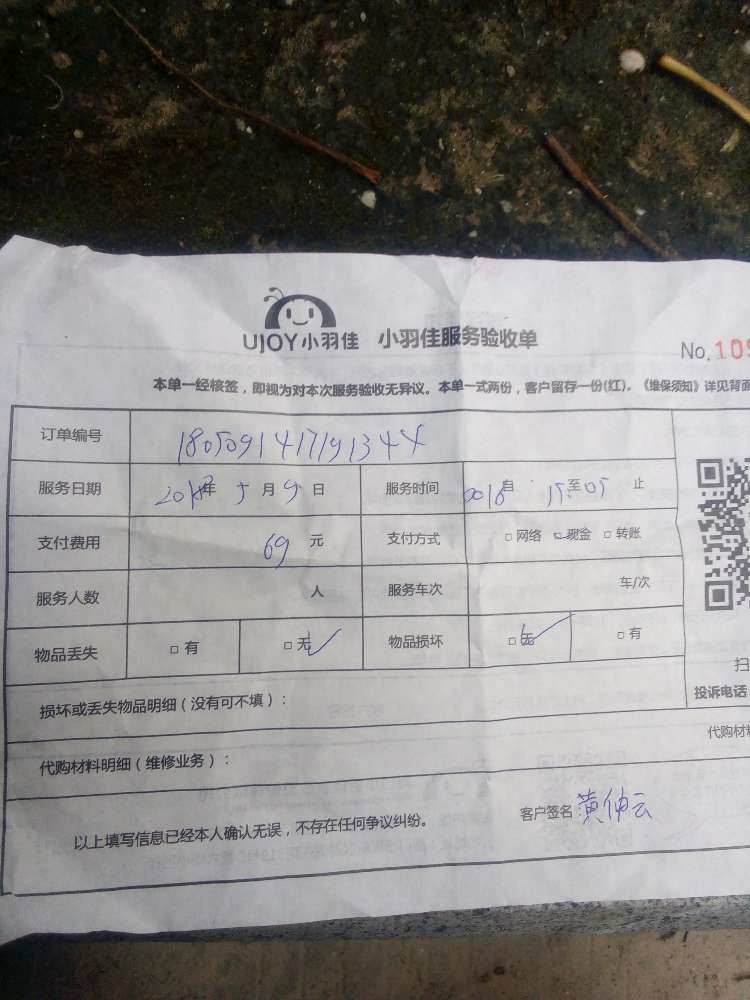 UJOY小羽佳 小羽佳服务验收单
No.109
本单一经核签，即视为对本次服务验收无异议。本单一式两份，客户留存一份(红)。《维保须知》详见背面
订单编号 1805091417191344
服务日期 2018年 5月9日 服务时间 自 15:至05 止
支付费用 69元 支付方式 □网络 □现金 □转账
服务人数 人 服务车次 车/次
物品丢失 □有 □无✓ 物品损坏 □无✓ □有
扫
损坏或丢失物品明细（没有可不填）：
投诉电话
代购材料
代购材料明细（维修业务）：
以上填写信息已经本人确认无误，不存在任何争议纠纷。 客户签名：黄仲云